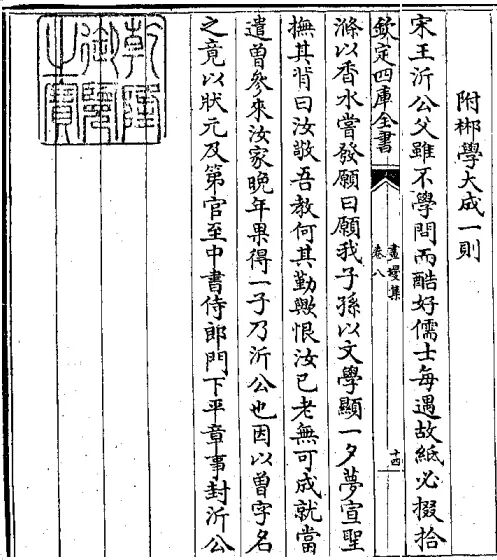 附梆學大成一則
宋王沂公父雖不學問而酷好儒士每遇故紙必掇拾
欽定四庫全書
畫墁集
卷八
十四
滌以香水嘗發願曰願我子孫以文學顯一夕夢宣聖
撫其背曰汝敬吾教何其勤歟恨汝已老無可成就當
遣曾參來汝家晚年果得一子乃沂公也因以曾字名
之竟以狀元及第官至中書侍郎門下平章事封沂公
乾隆御覽之寶